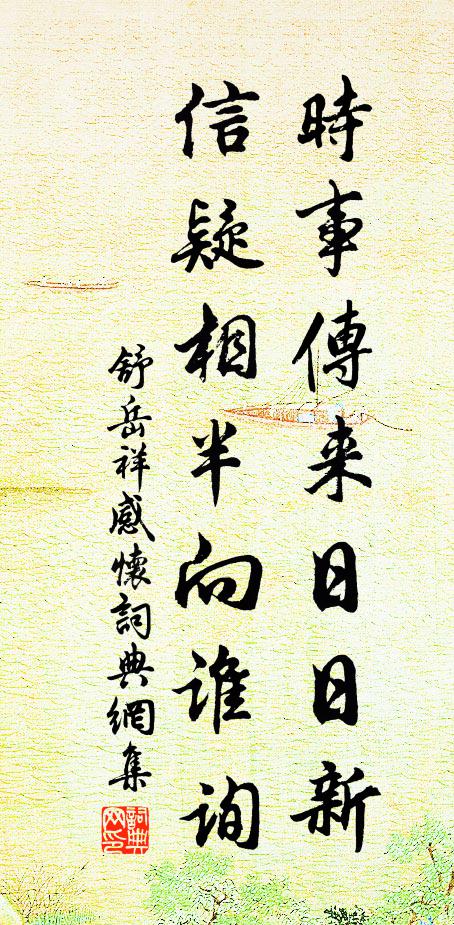 時事傳来日日新
信疑相半向誰詢
舒岳祥感懷詞典網集
詞典
网印